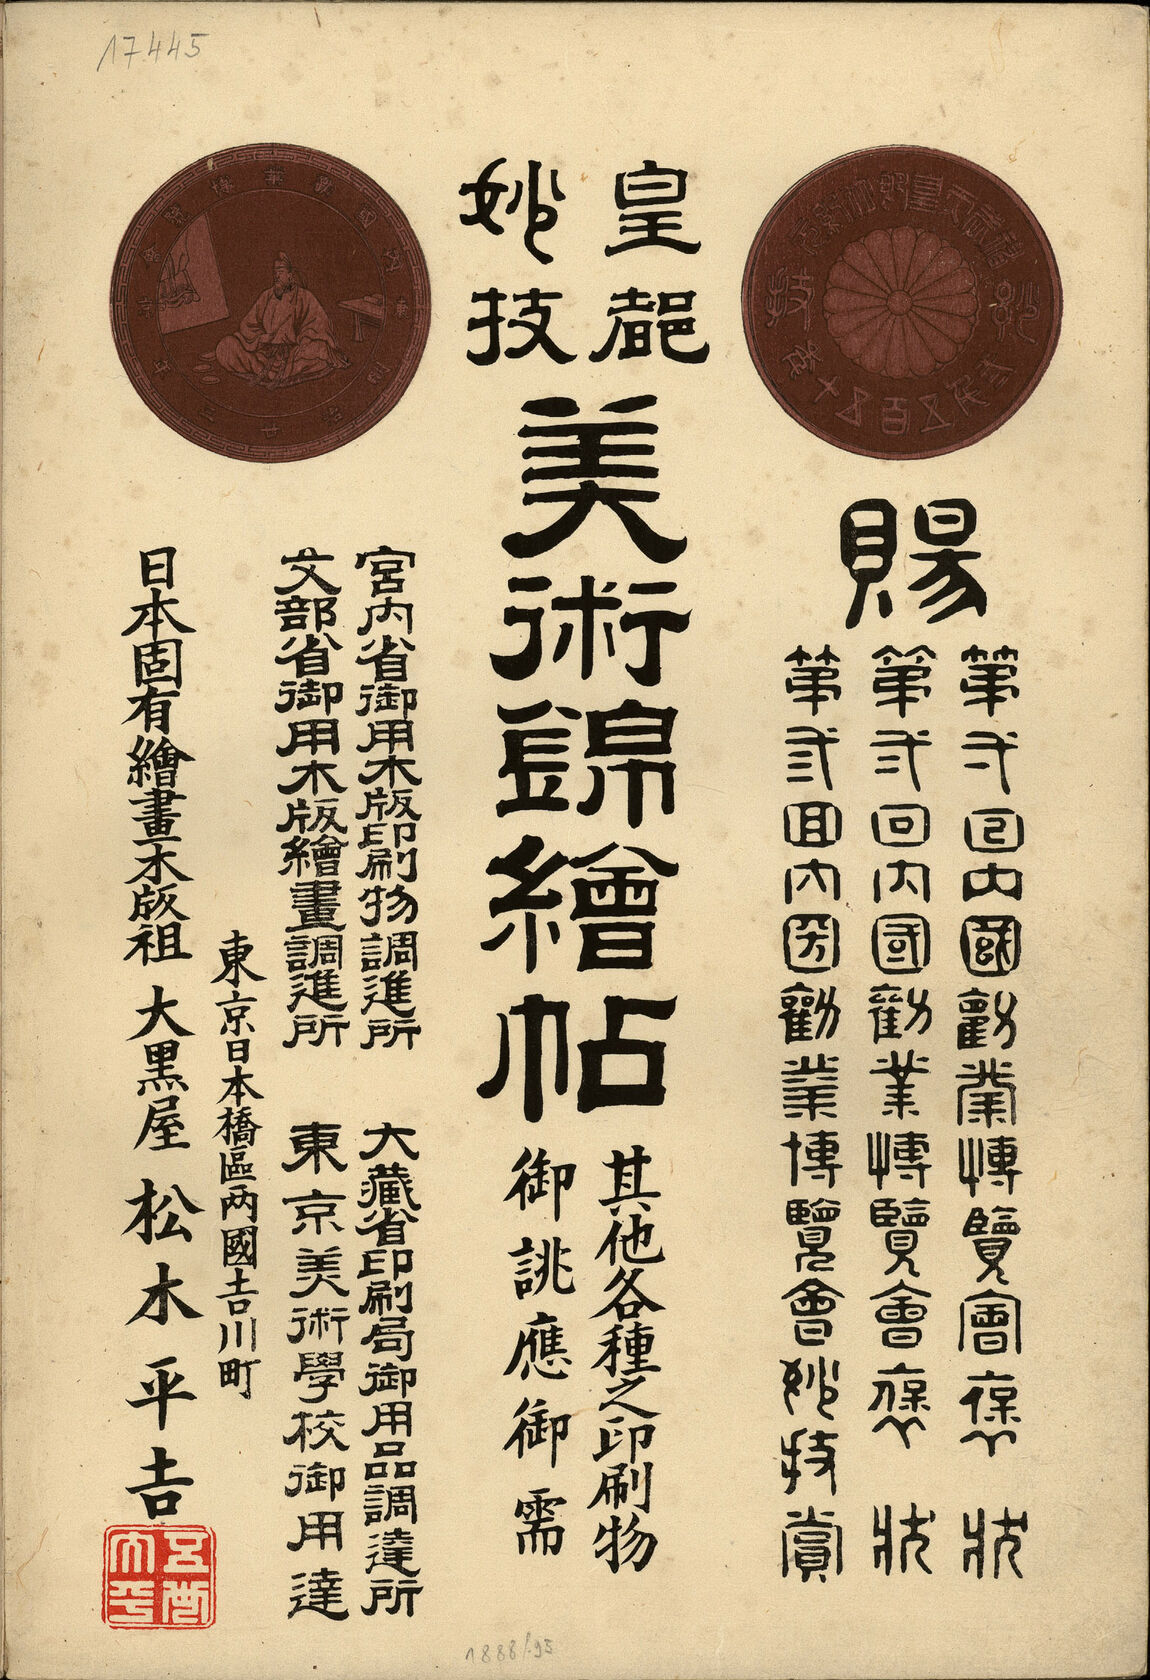 17445
賜
第弌回内國勸業博覽會褒状
第弍回内國勸業博覽會褒状
第弎回内國勸業博覽會妙技賞
皇都
妙技
美術錦繪帖
其他各種之印刷物
御誂應御需
宮内省御用木版印刷物調進所
大藏省印刷局御用品調達所
文部省御用木版繪畫調進所
東京美術學校御用達
東京日本橋區两國吉川町
日本固有繪畫木版祖 大黒屋 松木平吉